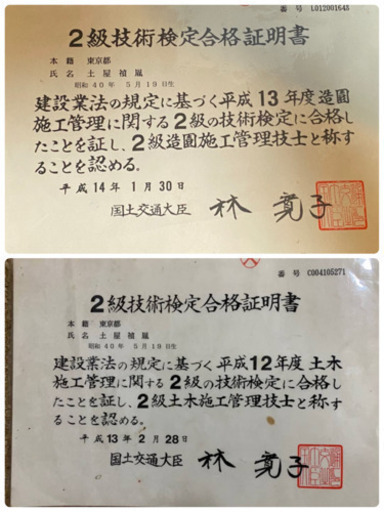 番号 L012001643
2級技術検定合格証明書
本籍 東京都
氏名 土屋禎胤
昭和40年 5月19日生
建設業法の規定に基づく平成13年度造園
施工管理に関する2級の技術検定に合格し
たことを証し、2級造園施工管理技士と称す
ることを認める。
平成14年1月30日
国土交通大臣 林 寛子
番号 C004105271
2級技術検定合格証明書
本籍 東京都
氏名 土屋禎胤
昭和40年 5月19日生
建設業法の規定に基づく平成12年度土木
施工管理に関する2級の技術検定に合格し
たことを証し、2級土木施工管理技士と称す
ることを認める。
平成13年2月28日
国土交通大臣 林 寛子